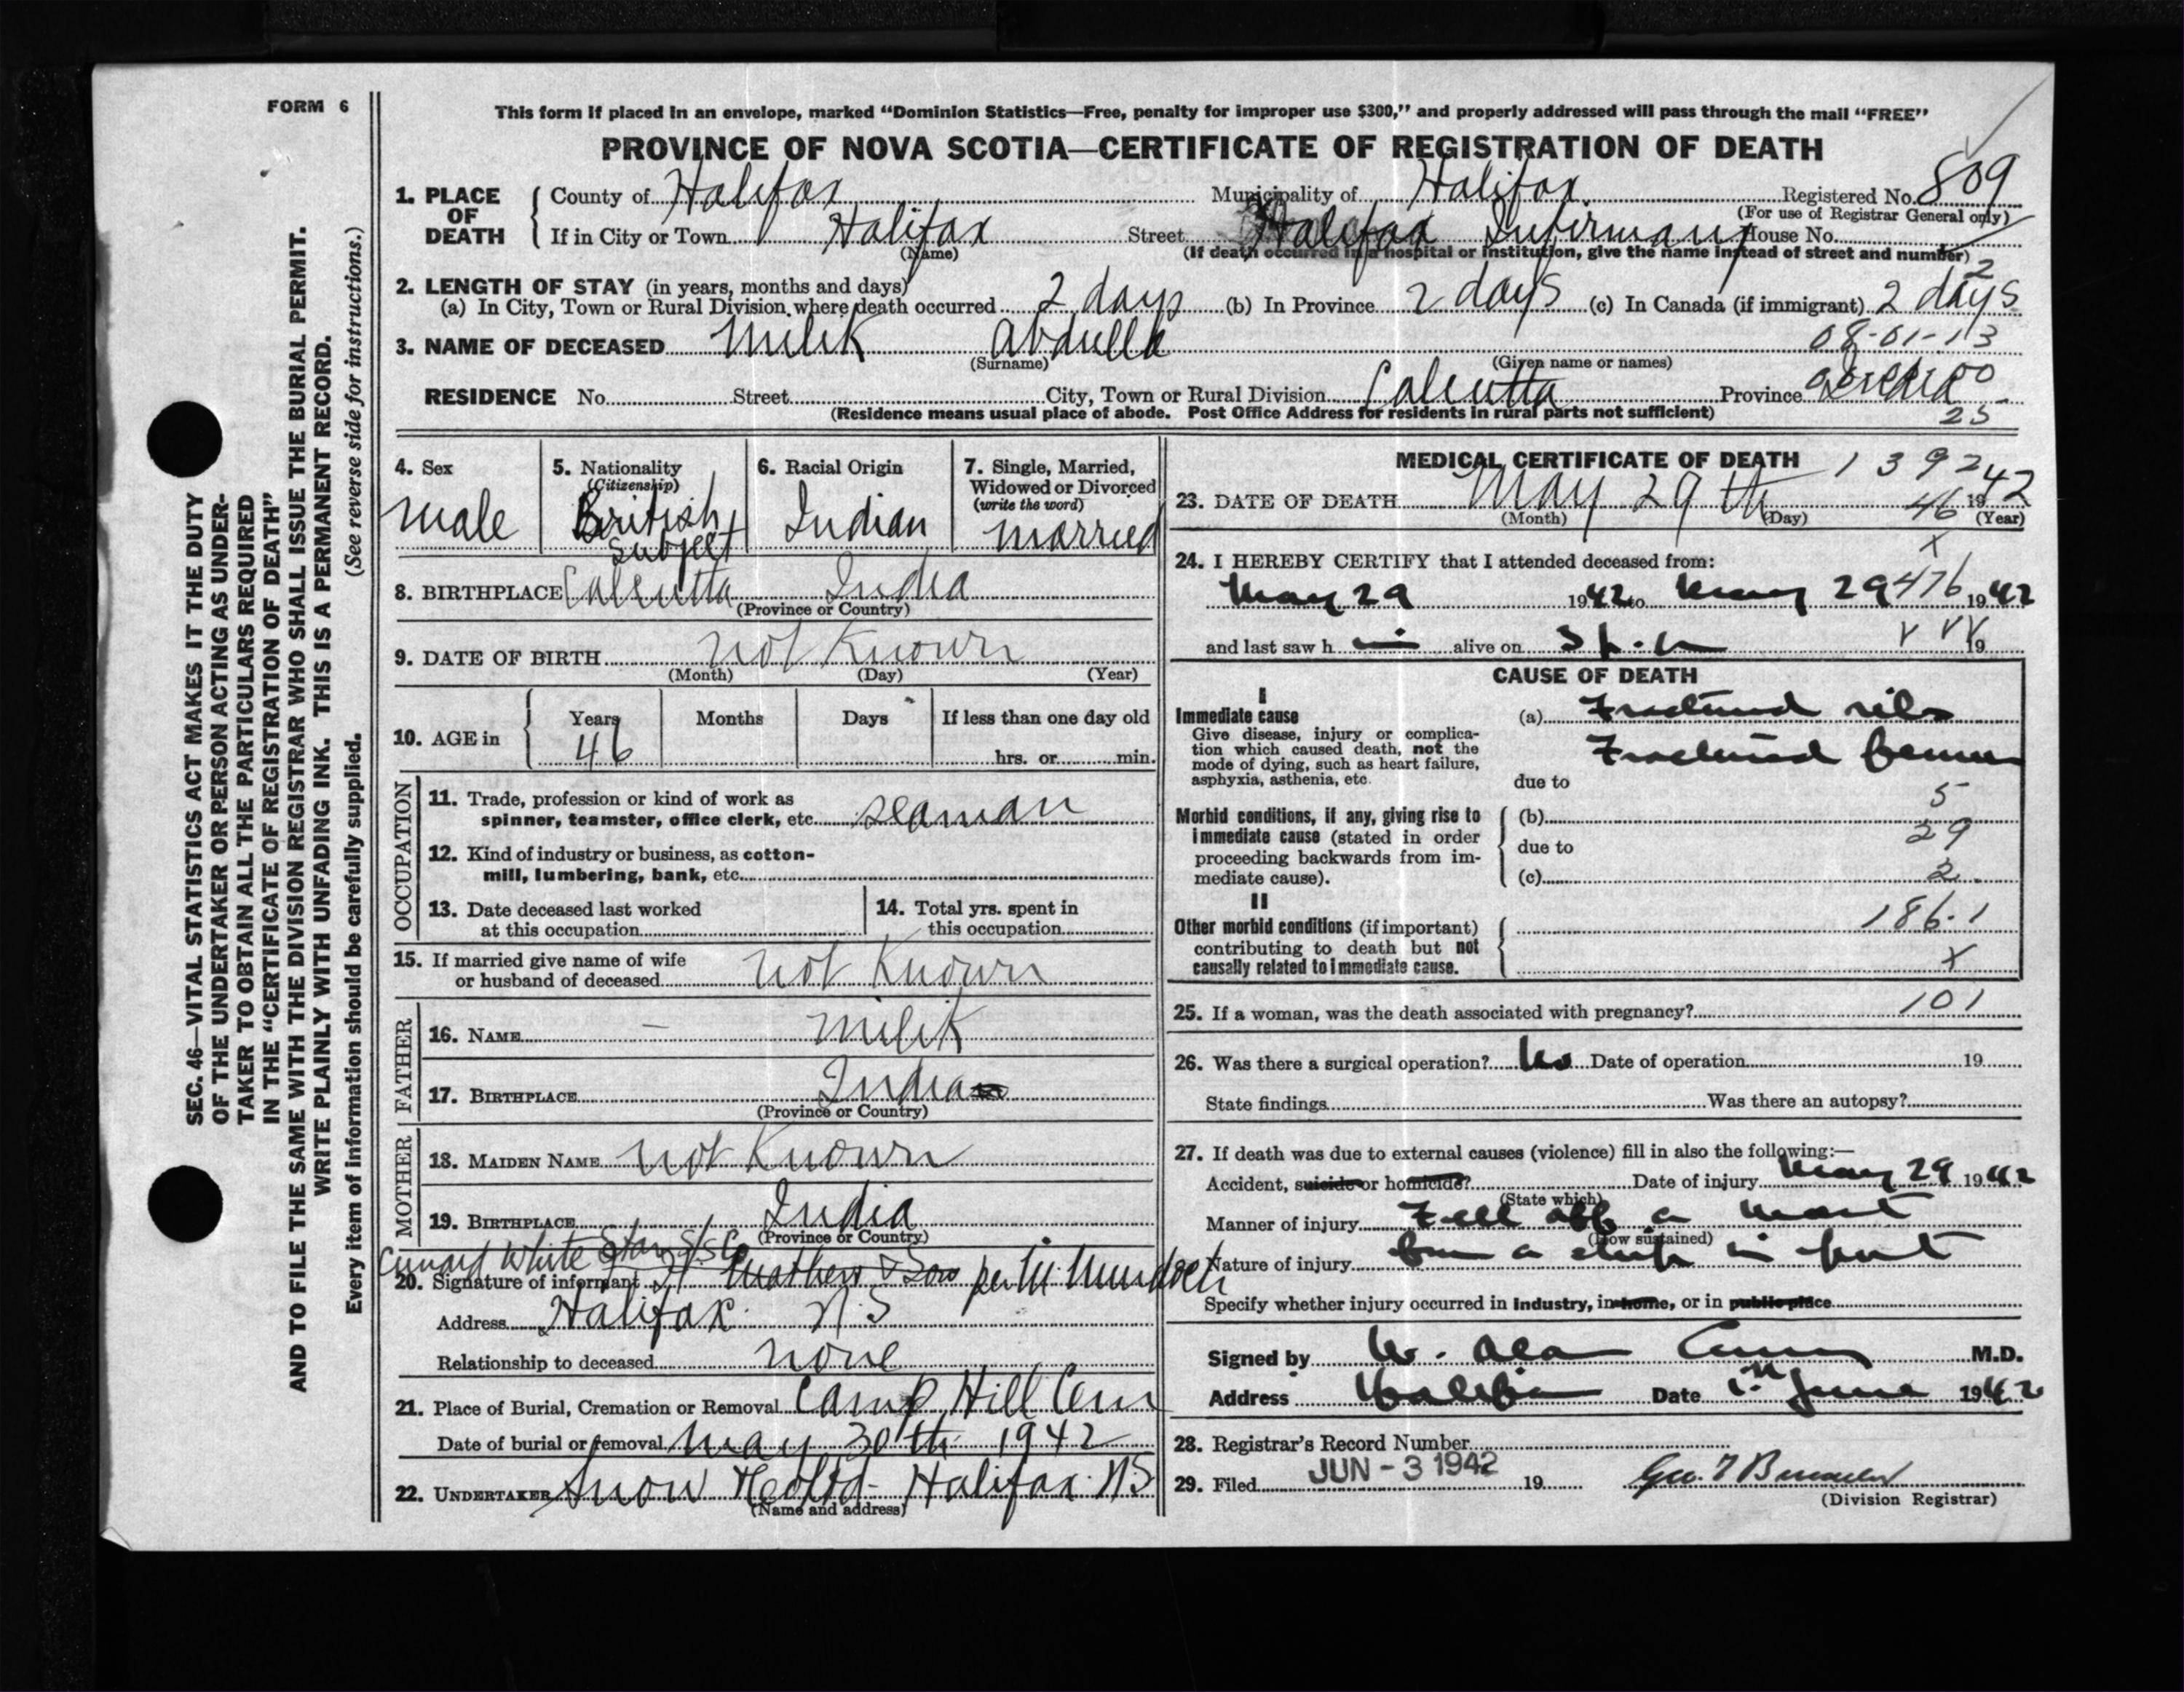 FORM 6
This form if placed in an envelope, marked "Dominion Statistics—Free, penalty for improper use $300," and properly addressed will pass through the mail "FREE"
PROVINCE OF NOVA SCOTIA—CERTIFICATE OF REGISTRATION OF DEATH
1. PLACE OF DEATH County of Halifax Municipality of Halifax Registered No. 809
(For use of Registrar General only)
If in City or Town Halifax Street Halifax Infirmary House No.
(Name) (If death occurred in a hospital or institution, give the name instead of street and number)
2
2. LENGTH OF STAY (in years, months and days)
(a) In City, Town or Rural Division where death occurred 2 days (b) In Province 2 days (c) In Canada (if immigrant) 2 days
08-01-13
3. NAME OF DECEASED Milik Abdulla
(Surname) (Given name or names)
RESIDENCE No. Street City, Town or Rural Division Calcutta Province India
(Residence means usual place of abode. Post Office Address for residents in rural parts not sufficient)
25
4. Sex
male
5. Nationality
(Citizenship)
British
subject
6. Racial Origin
Indian
7. Single, Married,
Widowed or Divorced
(write the word)
married
8. BIRTHPLACE Calcutta India
(Province or Country)
9. DATE OF BIRTH not Known
(Month) (Day) (Year)
10. AGE in Years Months Days If less than one day old
46 hrs. or min.
OCCUPATION
11. Trade, profession or kind of work as
spinner, teamster, office clerk, etc. seaman
12. Kind of industry or business, as cotton-
mill, lumbering, bank, etc.
13. Date deceased last worked
at this occupation
14. Total yrs. spent in
this occupation
15. If married give name of wife
or husband of deceased not Known
FATHER
16. NAME — milik
17. BIRTHPLACE India
(Province or Country)
MOTHER
18. MAIDEN NAME not Known
19. BIRTHPLACE India
(Province or Country)
Cunard White Star S/S Co
20. Signature of informant Mathers & Son per M. Murdoch
Address Halifax N.S
Relationship to deceased none
21. Place of Burial, Cremation or Removal Camp Hill Cem
Date of burial or removal May 30th 1942
22. UNDERTAKER Snow Halifax N.S
(Name and address)
MEDICAL CERTIFICATE OF DEATH 1392
23. DATE OF DEATH May 29th 1942
46
(Month) (Day) (Year)
x
24. I HEREBY CERTIFY that I attended deceased from:
May 29 1942 to May 29 1942
476
and last saw h im alive on 19
CAUSE OF DEATH
I
Immediate cause
Give disease, injury or complica-
tion which caused death, not the
mode of dying, such as heart failure,
asphyxia, asthenia, etc.
(a) Fractured ribs
Fractured femur
due to
5
Morbid conditions, if any, giving rise to
immediate cause (stated in order
proceeding backwards from im-
mediate cause).
(b)
29
due to
(c) 2
II
Other morbid conditions (if important)
contributing to death but not
causally related to immediate cause.
186.1
x
25. If a woman, was the death associated with pregnancy? 101
26. Was there a surgical operation? No Date of operation 19
State findings Was there an autopsy?
27. If death was due to external causes (violence) fill in also the following:—
Accident, suicide or homicide? Date of injury May 29 1942
(State which)
Manner of injury Fell off a mast
(How sustained)
Nature of injury from a ship in port
Specify whether injury occurred in Industry, in home, or in public place
Signed by W. Alan M.D.
Address Halifax Date 1st June 1942
28. Registrar's Record Number
29. Filed JUN - 3 1942 19
(Division Registrar)
SEC. 46—VITAL STATISTICS ACT MAKES IT THE DUTY
OF THE UNDERTAKER OR PERSON ACTING AS UNDER-
TAKER TO OBTAIN ALL THE PARTICULARS REQUIRED
IN THE "CERTIFICATE OF REGISTRATION OF DEATH"
AND TO FILE THE SAME WITH THE DIVISION REGISTRAR WHO SHALL ISSUE THE BURIAL PERMIT.
WRITE PLAINLY WITH UNFADING INK. THIS IS A PERMANENT RECORD.
Every item of information should be carefully supplied. (See reverse side for instructions.)